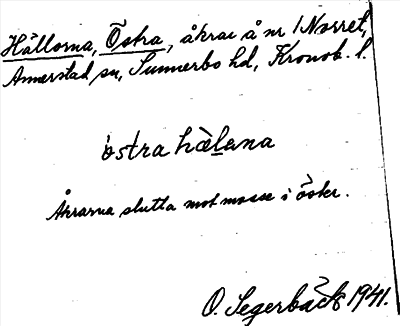 Hällorna, Östra, åkrar å nr 1 Norret,
Annerstad sn, Sunnerbo hd, Kronob. l.
östra hàlana
Åkrarna slutta mot mosse i öster.
O. Segerbäck 1941.